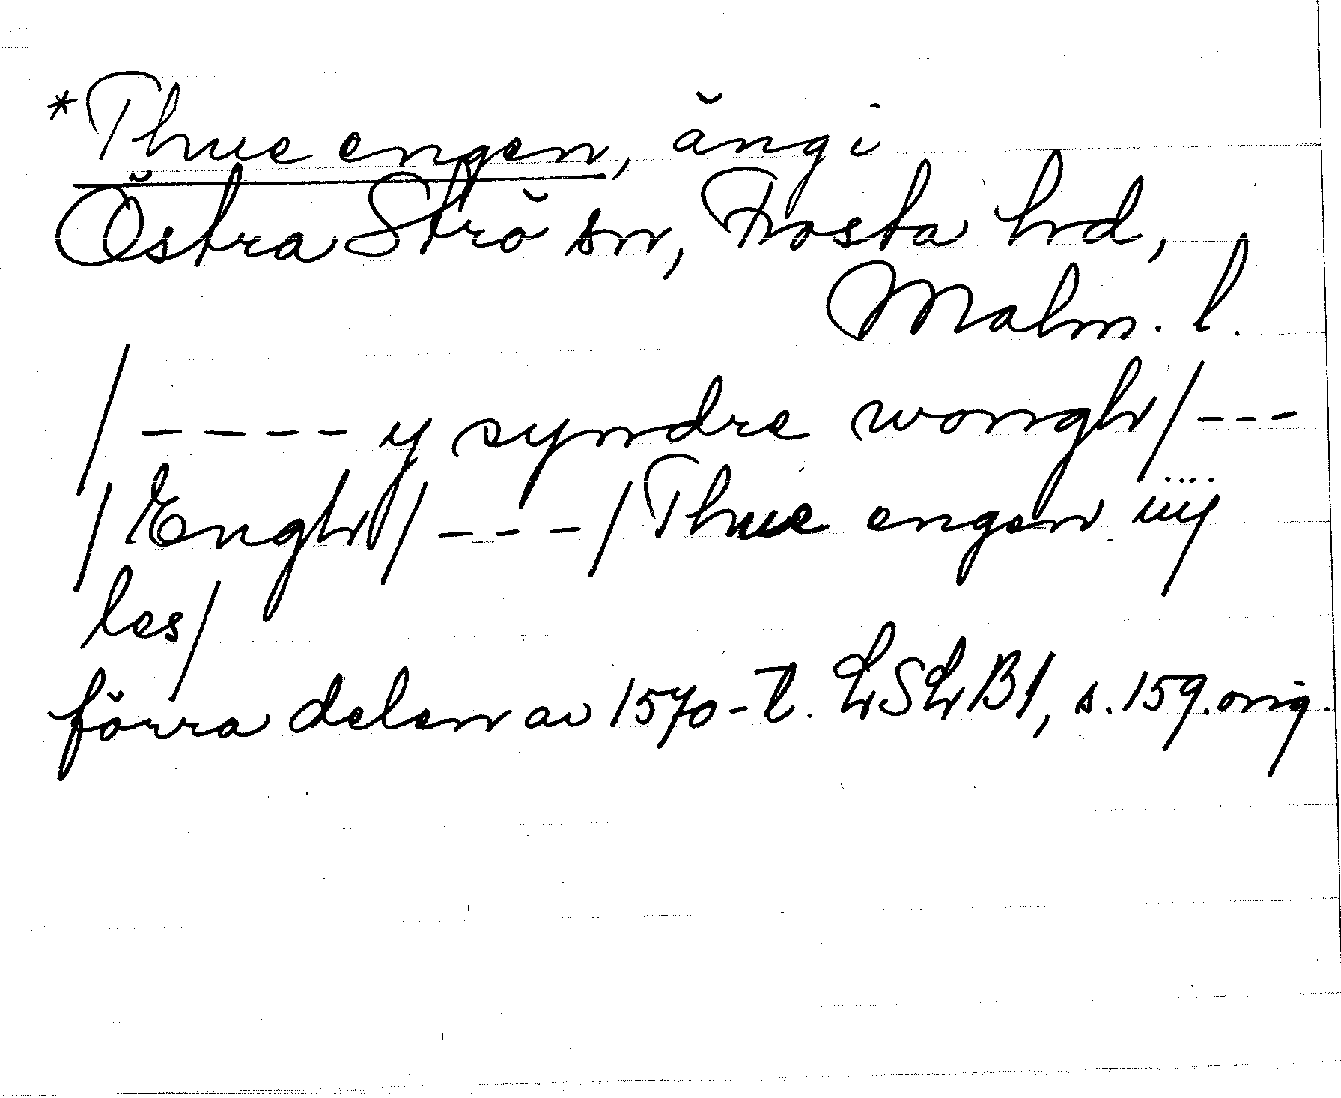 *Thue engen, äng i
Östra Strö sn, Frosta hd,
Malm. l.
/ - - - - y syndre wongh / - - -
/ Engh / - - - / Thue engen iiij
les /
förra delen av 1570-t. LSLB1, s. 159. orig.